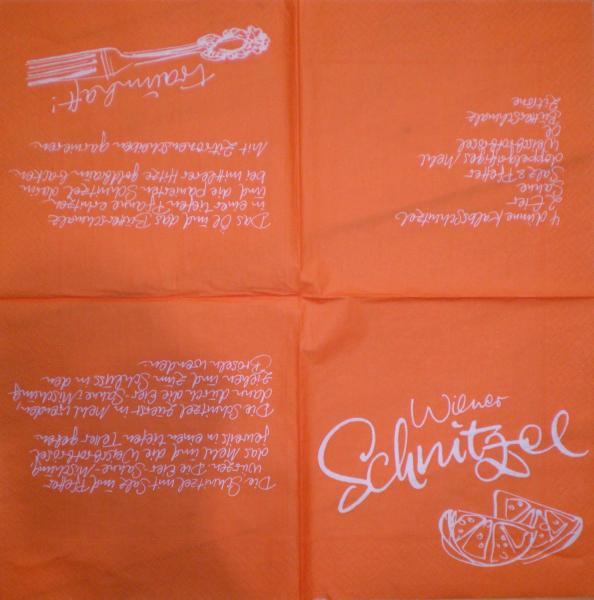 Wiener
Schnitzel
4 dünne Kalbsschnitzel
2 Eier
Sahne
Salz & Pfeffer
doppelgriffiges Mehl
Weissbrotbrösel
Öl
Butterschmalz
Zitrone
Die Schnitzel mit Salz und Pfeffer
würzen. Die Eier-Sahne-Mischung,
das Mehl und die Weissbrotbrösel
jeweils in einen tiefen Teller geben.
Die Schnitzel zuerst in Mehl wenden,
dann durch die Eier-Sahne-Mischung
ziehen und zum Schluss in den
Bröseln wenden.
Das Öl und das Butterschmalz
in einer tiefen Pfanne erhitzen
und die panierten Schnitzel darin
bei mittlerer Hitze goldbraun backen.
Mit Zitronenscheiben garnieren.
traumhaft!